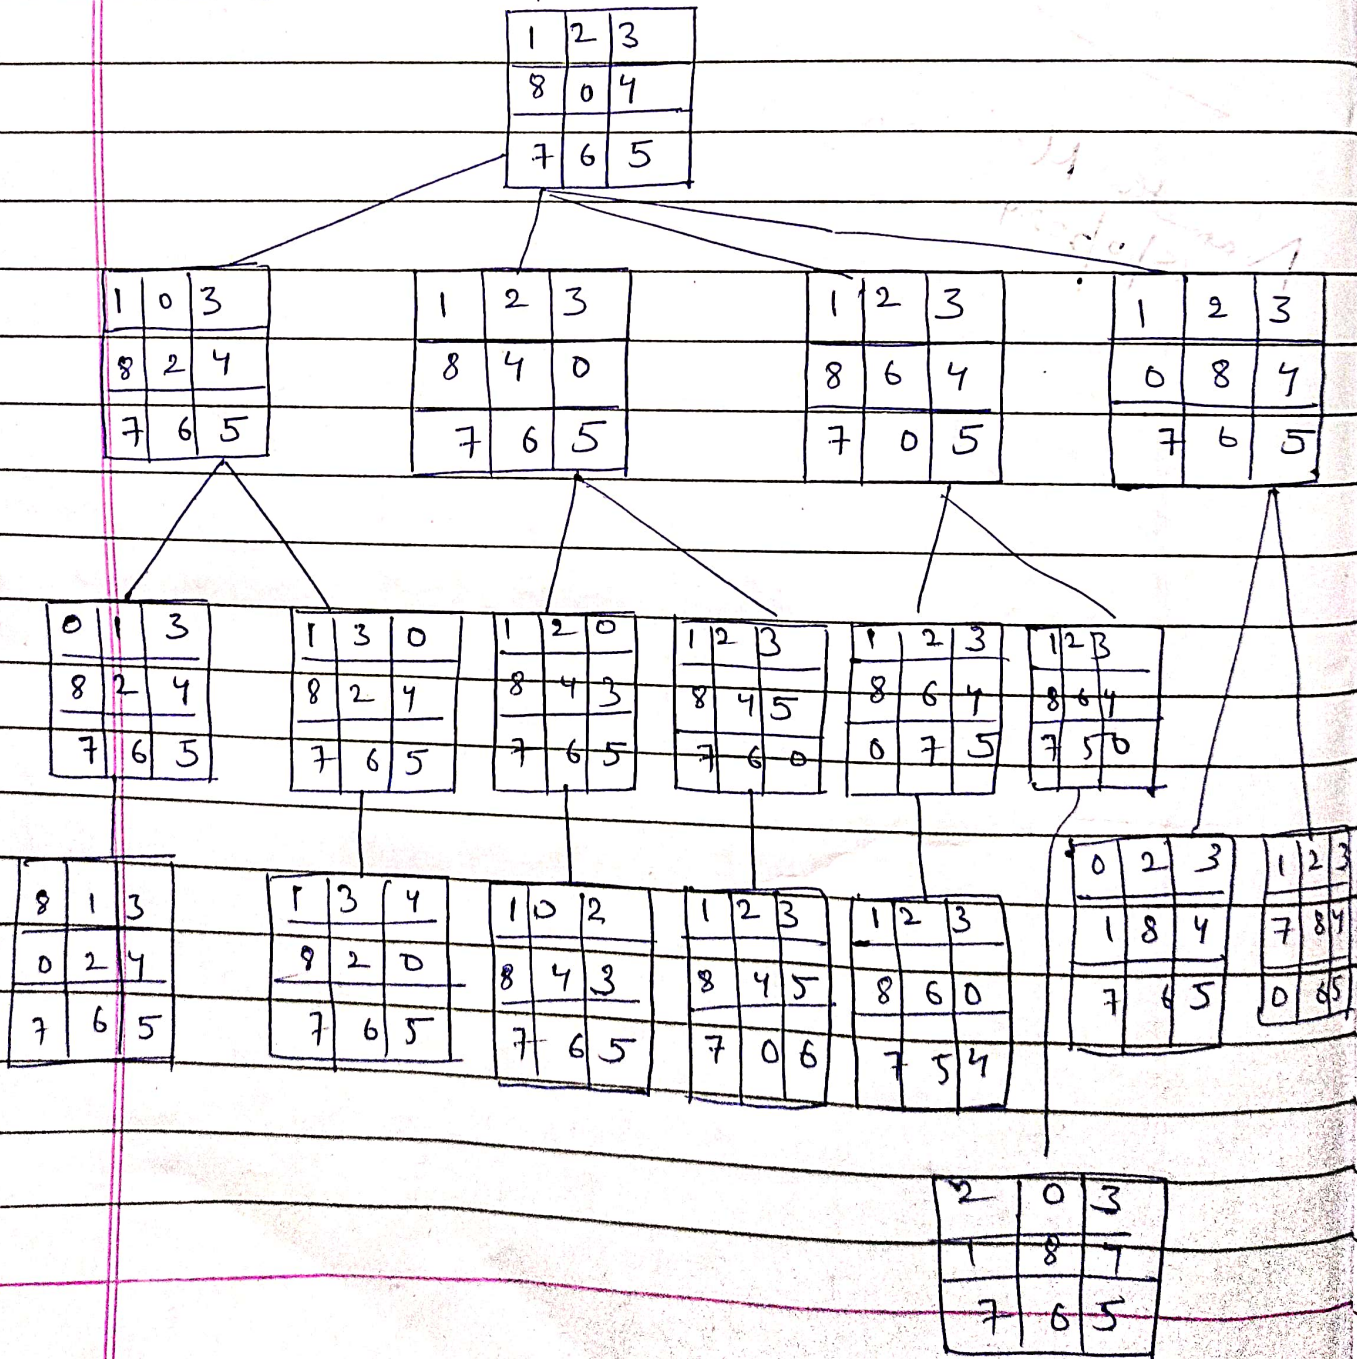 1 2 3
8 0 4
7 6 5
1 0 3
8 2 4
7 6 5
1 2 3
8 4 0
7 6 5
1 2 3
8 6 4
7 0 5
1 2 3
0 8 4
7 6 5
0 1 3
8 2 4
7 6 5
1 3 0
8 2 4
7 6 5
1 2 0
8 4 3
7 6 5
1 2 3
8 4 5
7 6 0
1 2 3
8 6 4
0 7 5
1 2 3
8 6 4
7 5 0
8 1 3
0 2 4
7 6 5
1 3 4
8 2 0
7 6 5
1 0 2
8 4 3
7 6 5
1 2 3
8 4 5
7 0 6
1 2 3
8 6 0
7 5 4
0 2 3
1 8 4
7 6 5
1 2 3
7 8 4
0 6 5
2 0 3
1 8 4
7 6 5